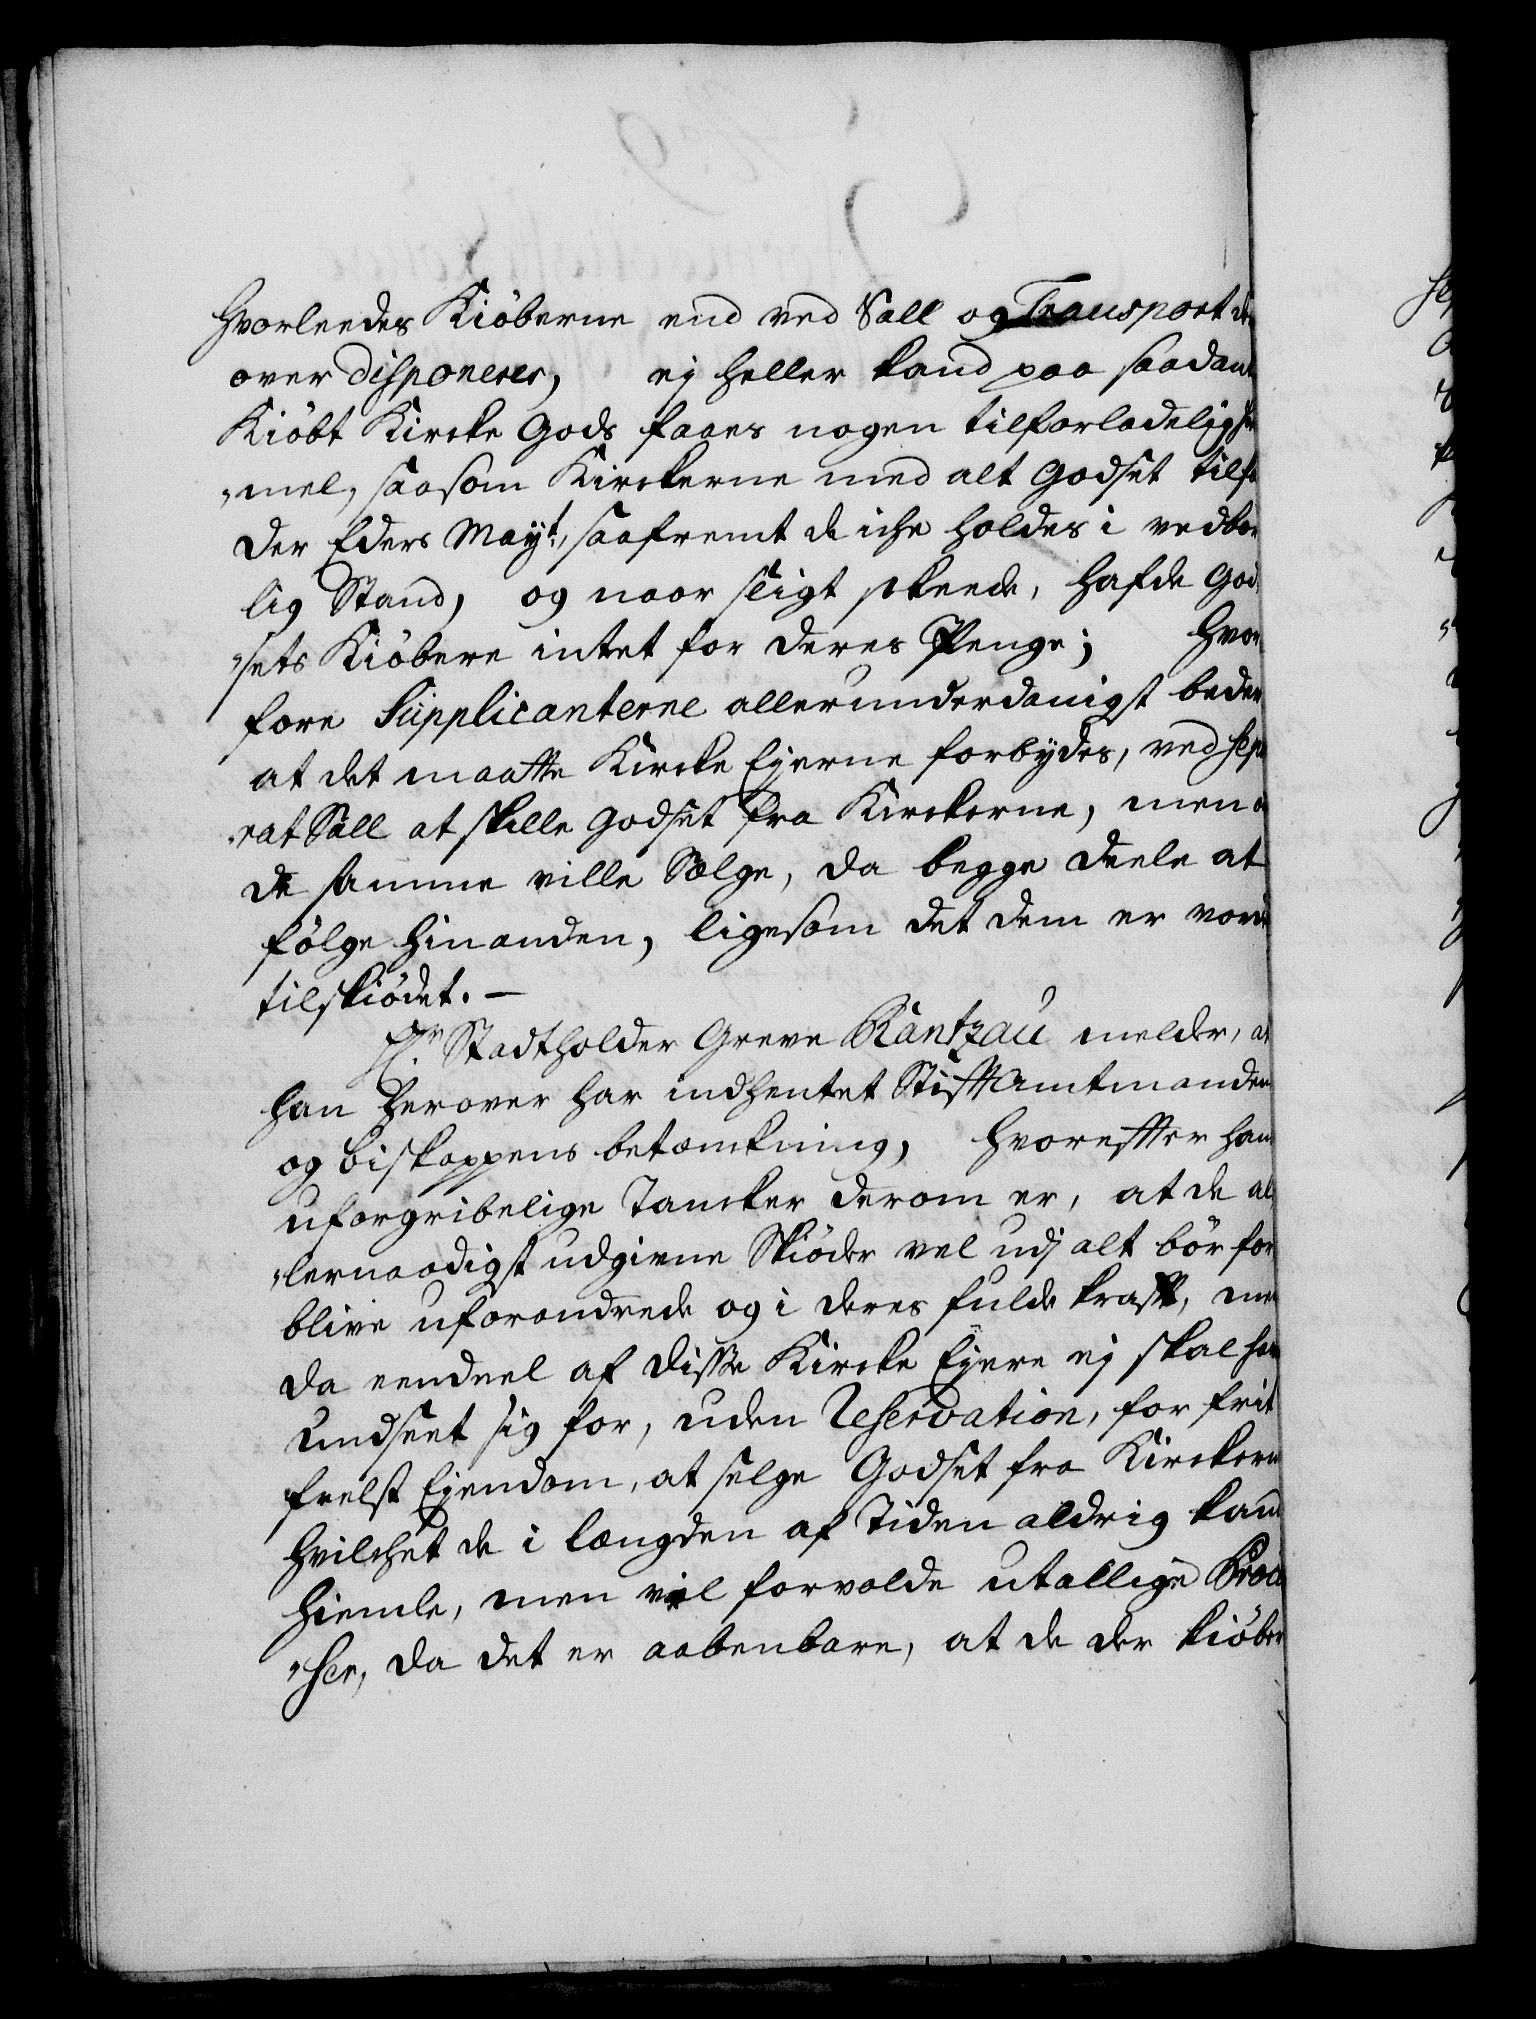 Hvorleedes Kiöberne end ved Sall og Transport der
over disponerer, ej heller kand paa saadant
Kiöbt Kircke Gods faaes nogen tilforladelig Hi
„mel, saasom Kirckerne med alt Godset tilfa
der Eders Mayt., saafremt de iche holdes i vedbør
lig Stand, og naar sligt skeede, hafde God
„sets Kiöbere intet for deres Penge; Hvor
fore Supplicanterne allerunderdanigst beder
at det maatte Kircke Ejerne forbydes, ved sepa
„rat Sall at skille Godset fra Kirckerne, men om
de samme ville Sælge, da begge deele at
fölge hinanden, ligesom det dem er vorde
tilskiödet. —
Hr. Stadtholder Greve Rantzau melder, at
han herover har indhentet Stifftamtmanden
og biskoppens betænkning, hvorefter hans
uforgribelige Tancker derom er, at de al
„lernaadigst udgivne Skiöder vel udj alt bör for
blive uforandrede og i deres fulde krafft, men
da eendeel af disse Kircke Ejere ej skal have
undseet sig for, uden Reservation, for frit
frelst Ejendom, at selge Godset fra Kirckerne
hvilchet de i længden af Tiden aldrig kand
hiemle, men vil forvolde utallige Proces
„ser, da det er aabenbare, at de der kiöber